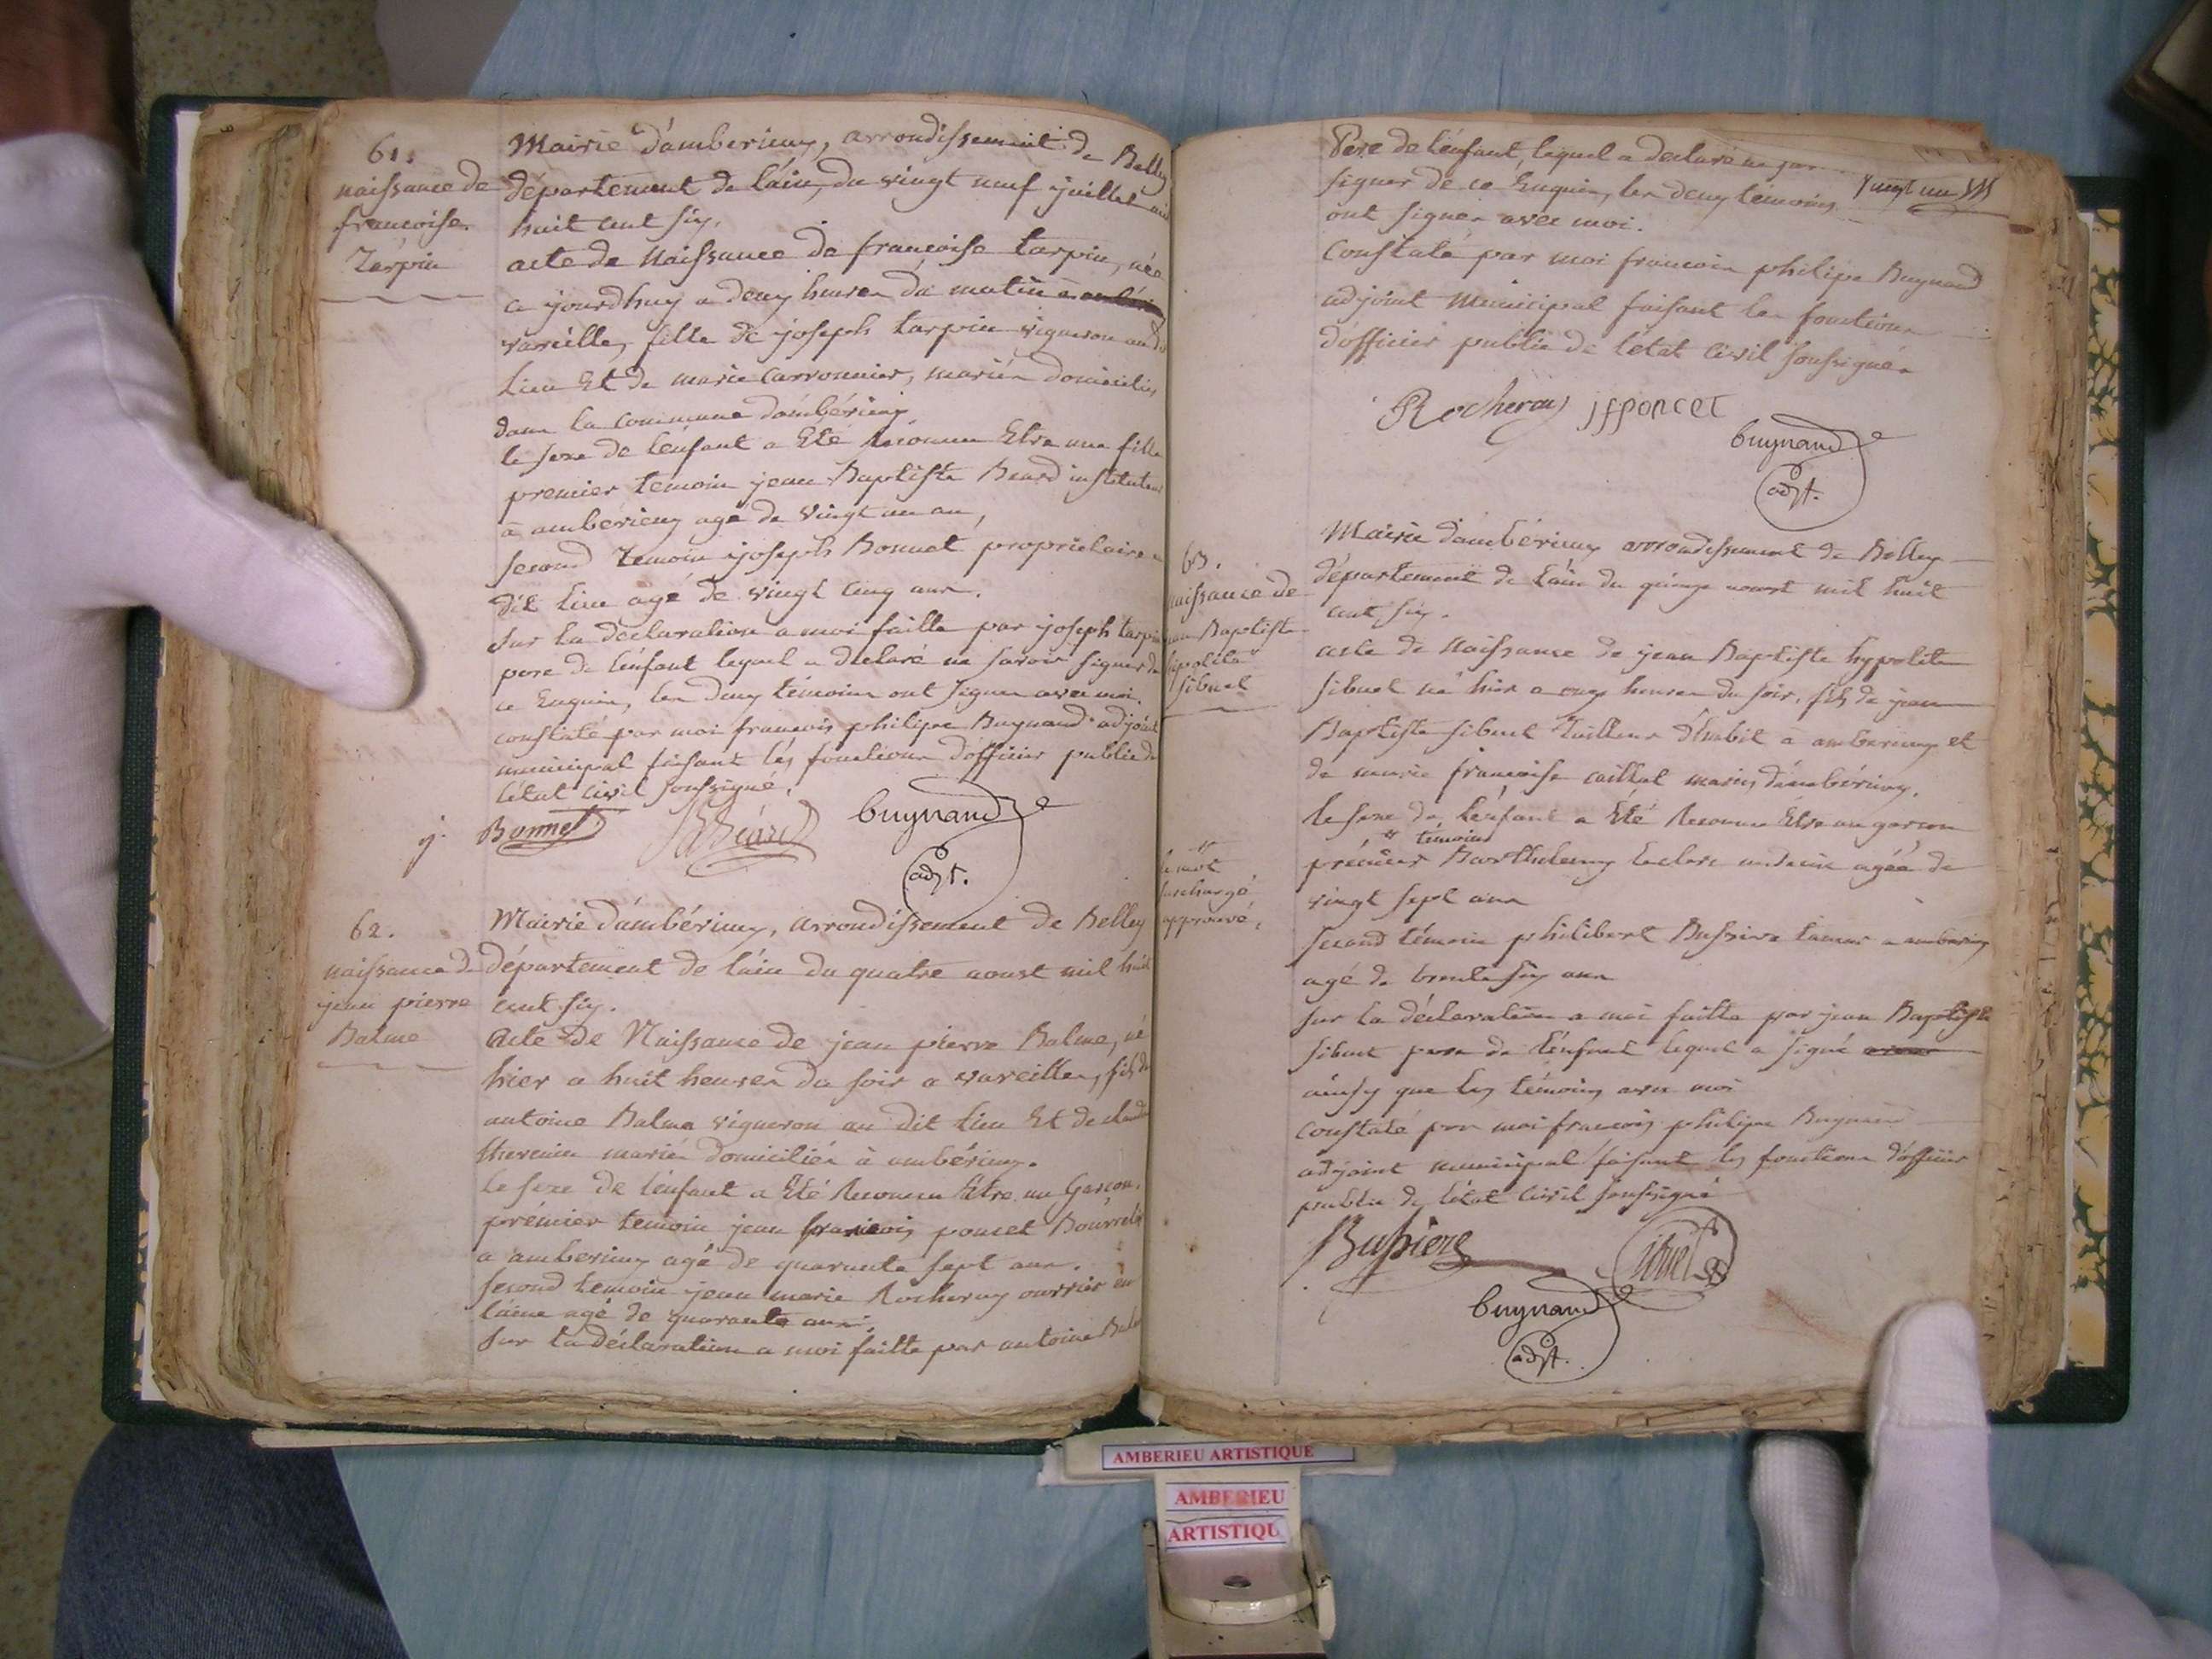 61.
naissance de
francoise
Tarpin
Mairie d'amberieux, arrondissement de Belley
département de l'ain, du vingt neuf juillet mil
huit cent six.
acte de Naissance de francoise tarpin, née
ce jourdhuy a deux heures du matin a
vareilles, fille de joseph tarpin vigneron au dit
lieu Et de marie Carronnier, mariés domiciliés
dans la commune d'ambérieux
le sexe de l'enfant a Eté Reconnu Etre une fille
premier temoin jean Baptiste Beard instituteur
à ambérieux agé de vingt un an,
second Temoin joseph Bonnet propriétaire
dit lieu agé de vingt cinq ans.
sur la declaration a moi faitte par joseph tarpin
pere de l'enfant lequel a declaré ne savoir signer de
ce Enquis, les deux témoins ont signer avec moi.
constaté par moi francois philipe Buynand adjoint
municipal faisant les fonctions d'officier public de
l'état civil soussigné.
j. Bonnet JB Béard buynand
adjt.
62.
naissance de
jean pierre
Balme
Mairie d'ambérieux, arrondissement de Belley
département de l'ain du quatre aoust mil huit
cent six.
Acte de Naissance de jean pierre Balme, né
hier a huit heures du soir a vareilles, fils de
antoine Balme vigneron au dit lieu Et de claudine
thevenin mariés domiciliés à ambérieux.
le sexe de l'enfant a Eté Reconnu Etre un Garçon.
prémier temoin jean francois poncet Bourrelier
a amberieux agé de quarante sept ans.
second temoin jean marie Rocheray ouvrier en
laine agé de quarante ans.
sur la déclaration a moi faitte par antoine Balme
Père de l'enfant, lequel a declaré ne pas
signer de ce Enquis, les deux témoins
ont signer avec moi.
constaté par moi francois philipe Buynand
adjoint Municipal faisant les fonctions
d'officier public de l'état civil soussigné
Rocheray jfponcet
buynand
adjt.
63.
naissance de
jean Baptiste
hipolite
sibuet
Mairie d'ambérieux arrondissement de Belley
département de l'ain du quinze aoust mil huit
cent six.
acte de Naissance de jean Baptiste hypolite
sibuet né hier a onze heures du soir, fils de jean
Baptiste sibuet Tailleur d'habit à amberieux et
de marie francoise caillat mariés d'ambérieux.
le sexe de l'enfant a Eté Reconnu Etre un garcon
témoins
prémier Barthelemy agée de
vingt sept ans
le mot
surchargé
approuvé.
second témoin philibert Bussiere a amberieux
agé de trente six ans
sur la déclaration a moi faitte par jean Baptiste
sibuet pere de l'enfant lequel a signé
ainsy que les témoins avec moi
constaté par moi francois philipe Buynand
adjoint municipal faisant les fonctions d'officier
public de l'état civil soussigné
Bussiere sibuet
buynand
adjt.
AMBERIEU ARTISTIQUE
AMBERIEU
ARTISTIQU